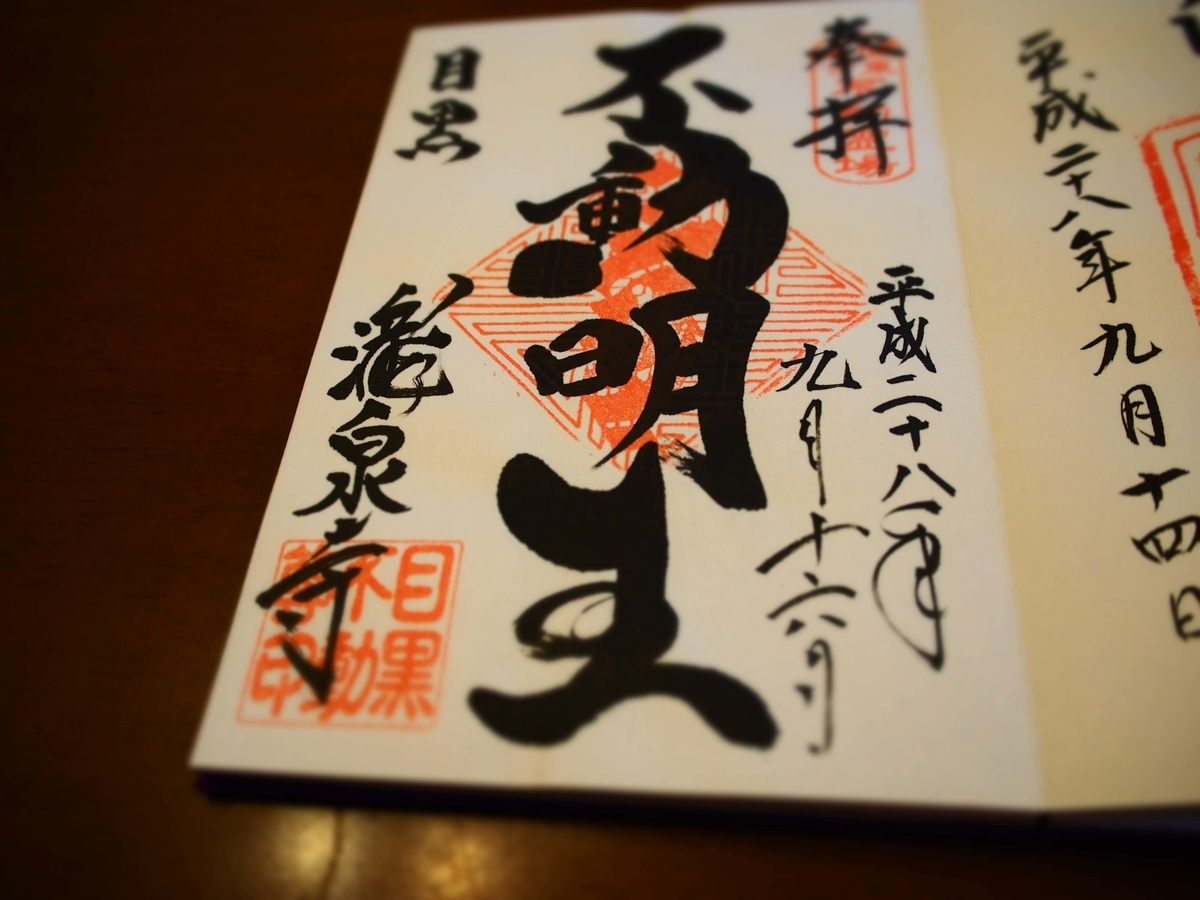 平成二十八年九月十四日
奉拝
平成二十八年
九月十六日
不動明王
目黒
瀧泉寺
目黒
不動
尊印